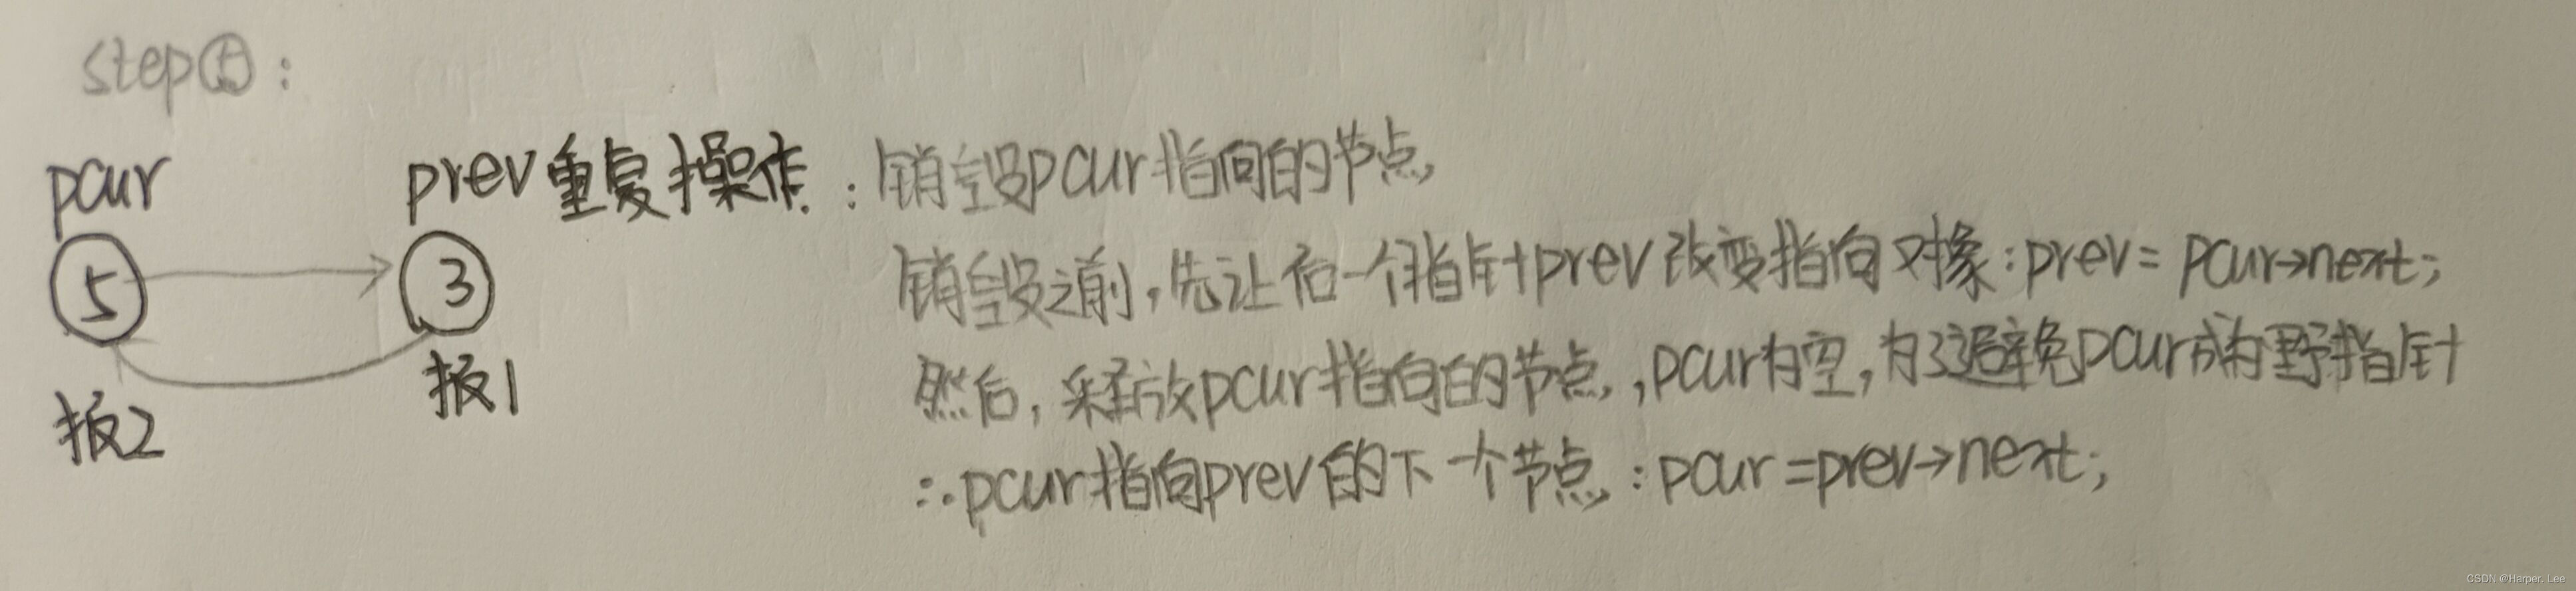 step⑤:
pcur
prev重复操作:销毁pcur指向的节点,
5
3
销毁之前,先让后一个指针prev改变指向对象:prev=pcur→next;
板1
然后,释放pcur指向的节点,,pcur为空,为了避免pcur成为野指针
板2
∴pcur指向prev的下一个节点:pcur=prev→next;
CSDN @Harper, Lee